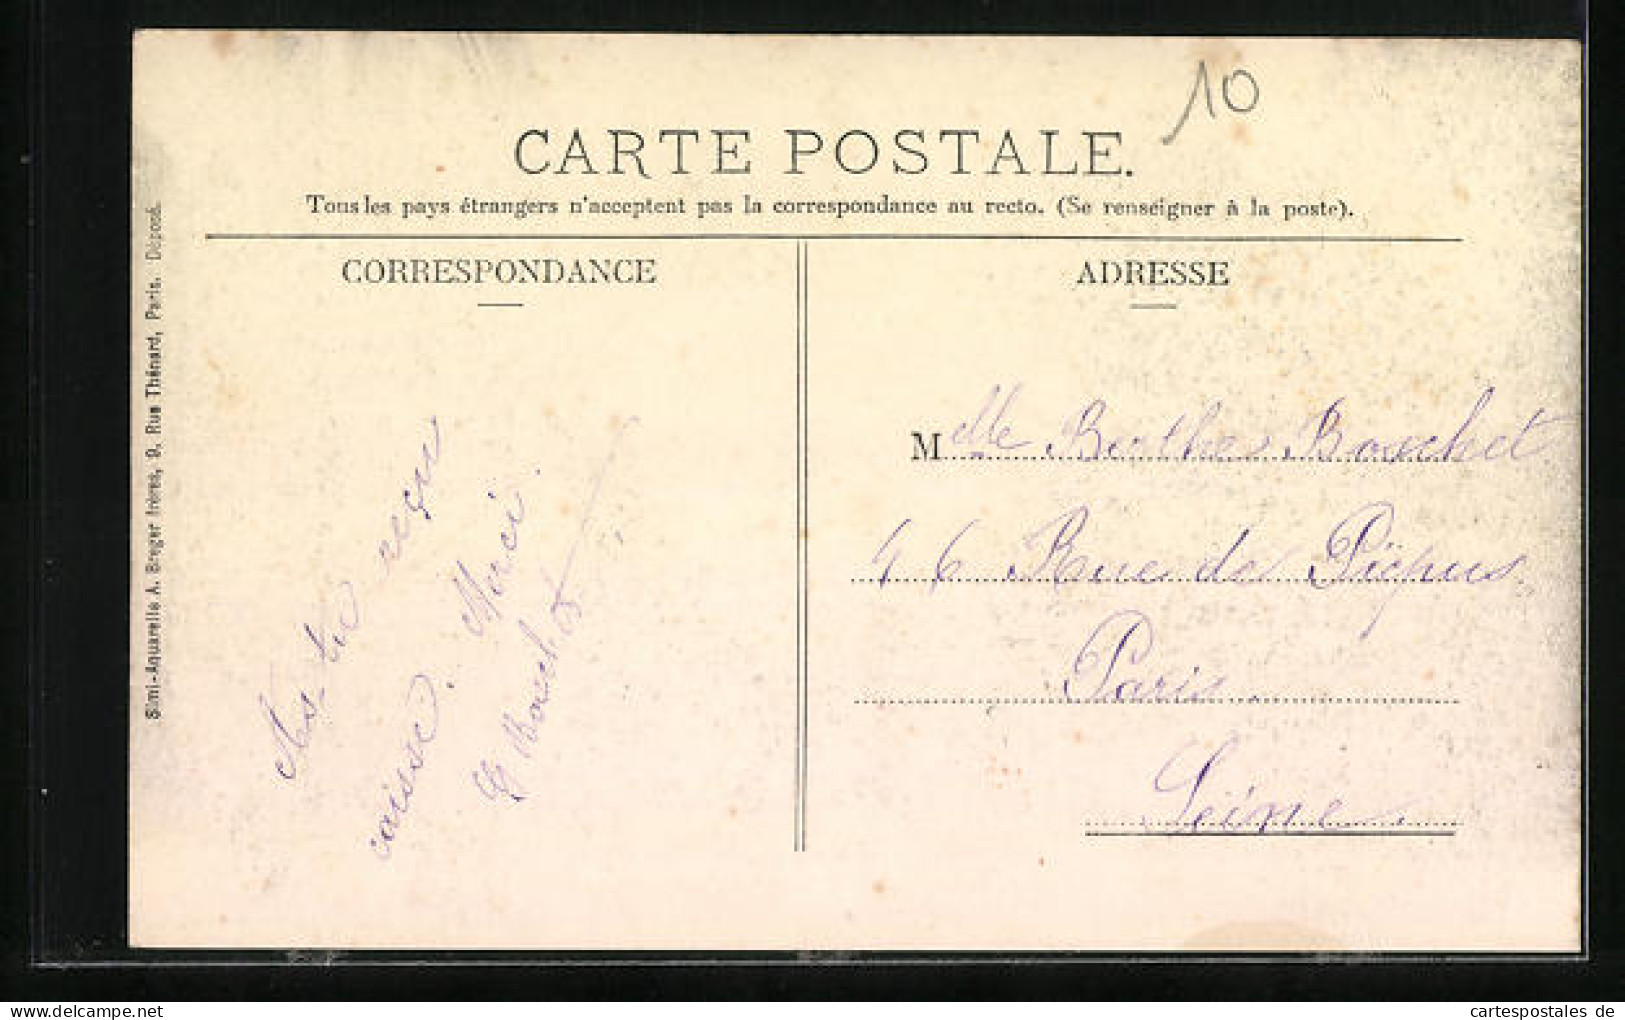 10
CARTE POSTALE.
Tous les pays étrangers n'acceptent pas la correspondance au recto. (Se renseigner à la poste).
CORRESPONDANCE
reçu
caisse. Merci.
Bouchet
ADRESSE
Melle Berthe Bouchet
46 Rue de Picpus
Paris
Seine
Simi-Aquarelle A. Breger frères, 9, Rue Thénard, Paris. Déposé.
cartespostales de